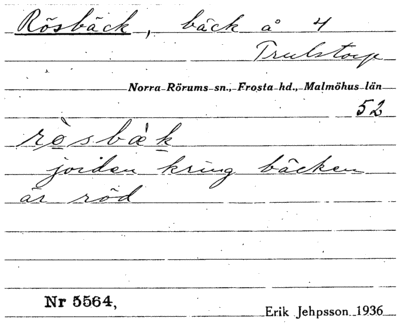 Rösbäck, bäck å 4
Trulstorp
Norra Rörums sn., Frosta hd., Malmöhus län
52
rò̀sbàk
jorden kring bäcken
är röd
Nr 5564,
Erik Jehpsson 1936